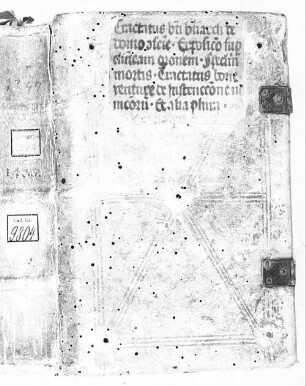 Tractatus bti bernardi de
domo 9scie · Expositio sup
dnicam oronem · Speculum
mortis · Tractatus bone
venture de instruccone no
uicioru · Et alia plura ·
Cod. lat.
9804